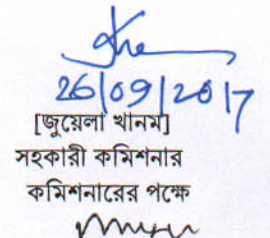 26/09/2017
[জুয়েলা খানম]
সহকারী কমিশনার
কমিশনারের পক্ষে